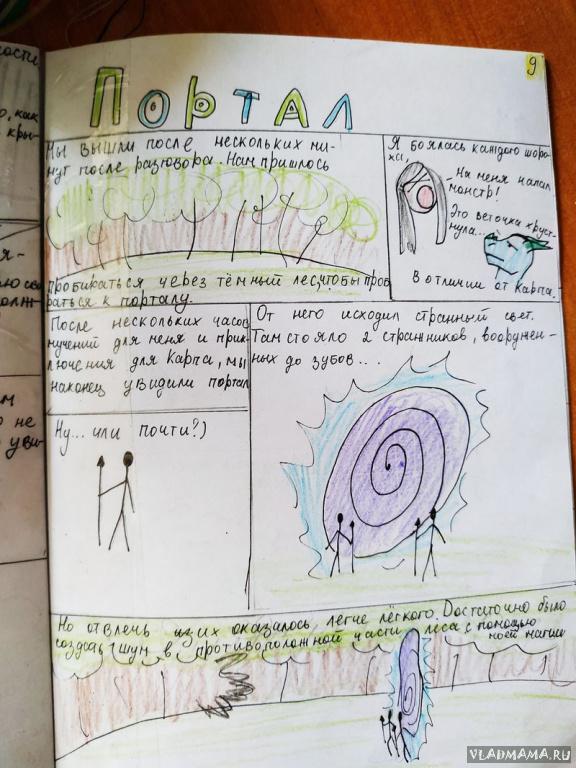 9
Портал
Мы вышли после нескольких ми-
нут после разговора. Нам пришлось
пробираться через тёмный лес, чтобы проб
раться к порталу.
Я боялась каждого шоро-
ха,
- На меня напал
монстр!
Это веточка хруст-
нула...
В отличии от Карпа.
После нескольких часов
мучений для меня и прик
лючения для Карпа, мы
наконец увидили портал
От него исходил странный свет.
Там стояло 2 стражников, вооружен-
ных до зубов...
Ну... или почти?)
Но отвлечь их оказалось, легче лёгкого. Достаточно было
создать шум в противоположной части леса с помощью
моей магии
ости
о, как
кры-
я-
ю сво
олж-
м
о не
уви-
VLADMAMA.RU